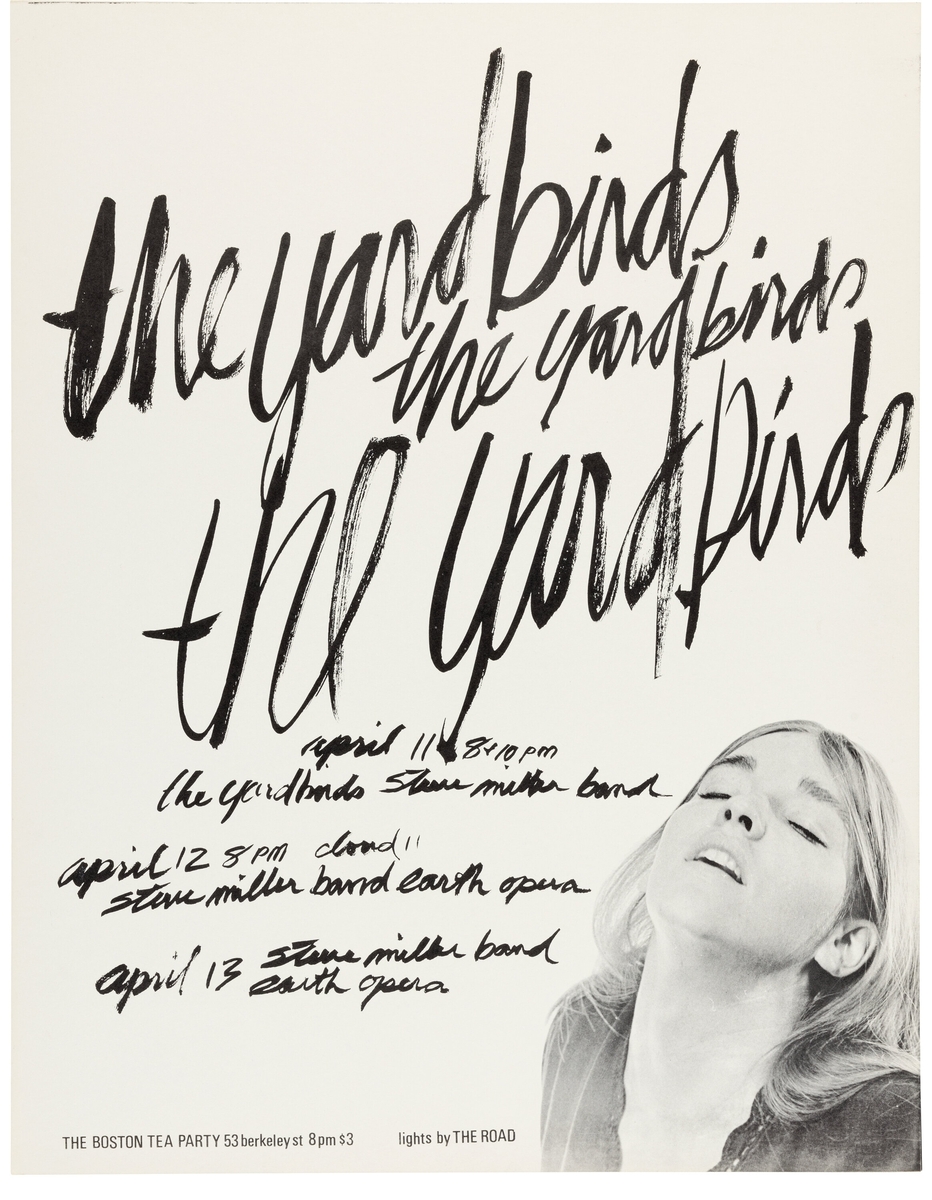 the yardbirds
the yardbirds
the yardbirds
april 11 8+10 pm
the yardbirds steve miller band
april 12 8 pm
steve miller band earth opera
april 13 steve miller band
earth opera
THE BOSTON TEA PARTY 53 berkeley st 8pm $3 lights by THE ROAD